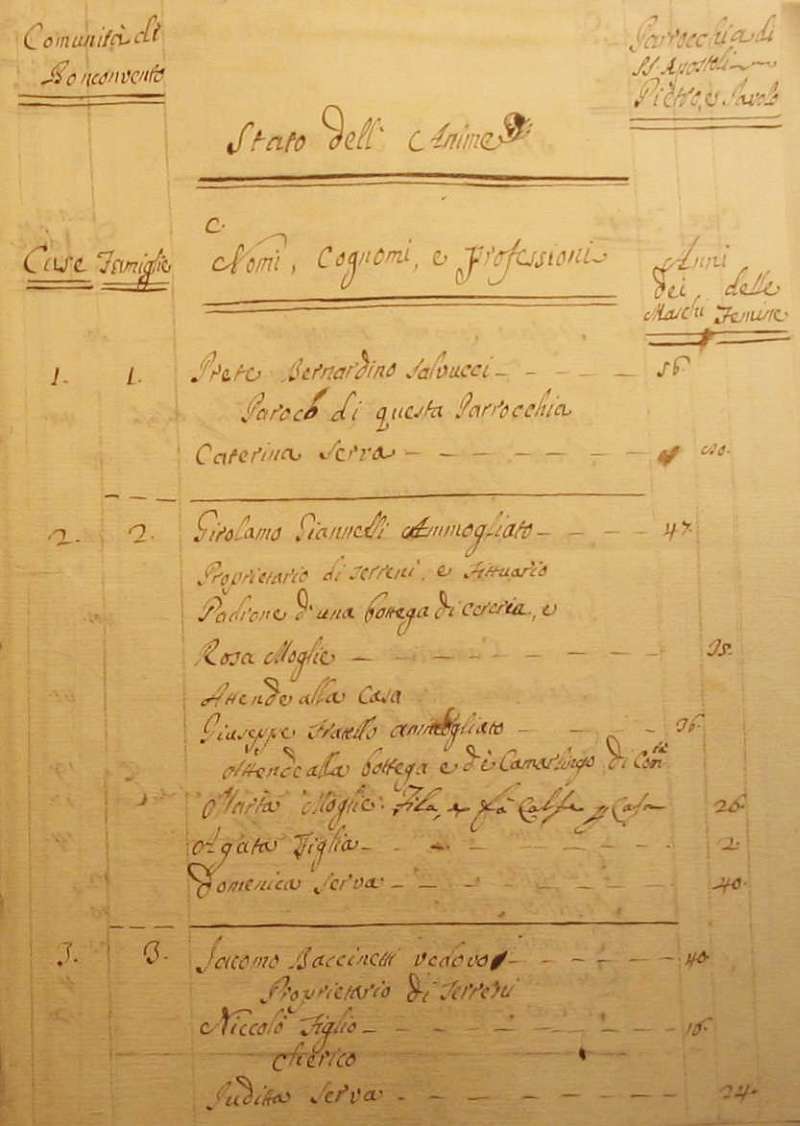 Comunità di
Bonconvento
Parrocchia di
SS Apostoli
Pietro, e Paolo
Stato dell' Anime
Case Famiglie
Nomi, Cognomi, e Professioni
Anni
dei delle
Maschi Femine
1. 1. Prete Bernardino Salvucci 56
Paroco di questa Parrocchia
Caterina Serva
2. 2. Girolamo Giannelli Ammogliato 47.
Proprietario di Terreni, e Fittuario
Padrone d'una bottega di Cereria, e
Rosa Moglie 35.
Attende alla Casa
Giuseppe Fratello ammogliato 36.
Attende alla bottega e di Camarlingo di
Maria Moglie. Fila, e fà Calse p Casa 26.
Agata Figlia 2.
Domenica Serva 40.
3. 3. Jacomo Baccinetti vedovo 40.
Proprietario di Terreni
Niccolò Figlio 16.
Cherico
Juditta Serva 24.